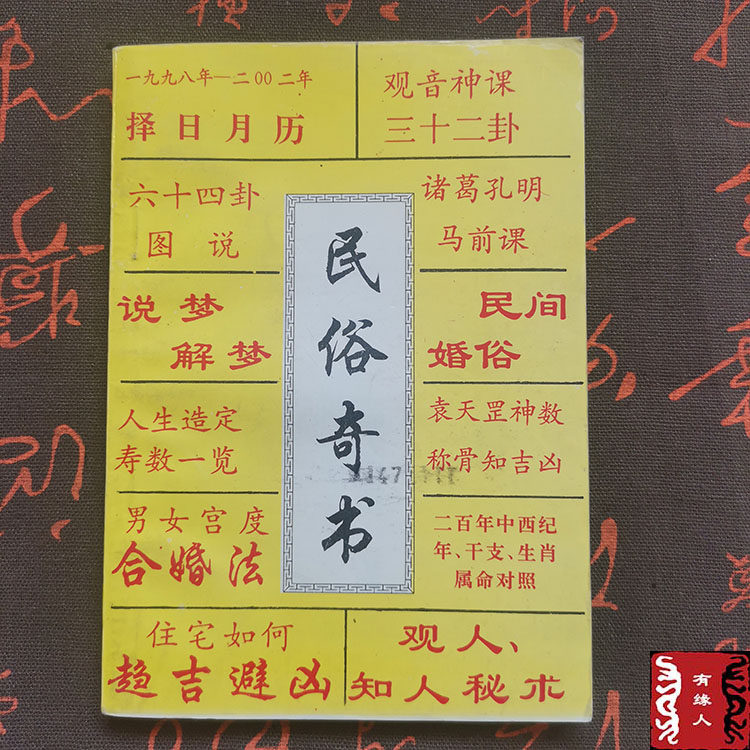 一九九八年—二00二年
择日月历
观音神课
三十二卦
六十四卦
图说
诸葛孔明
马前课
民俗奇书
说梦
解梦
民间
婚俗
人生造定
寿数一览
袁天罡神数
称骨知吉凶
男女宫度
合婚法
二百年中西纪
年、干支、生肖
属命对照
住宅如何
趋吉避凶
观人、
知人秘术
有缘人